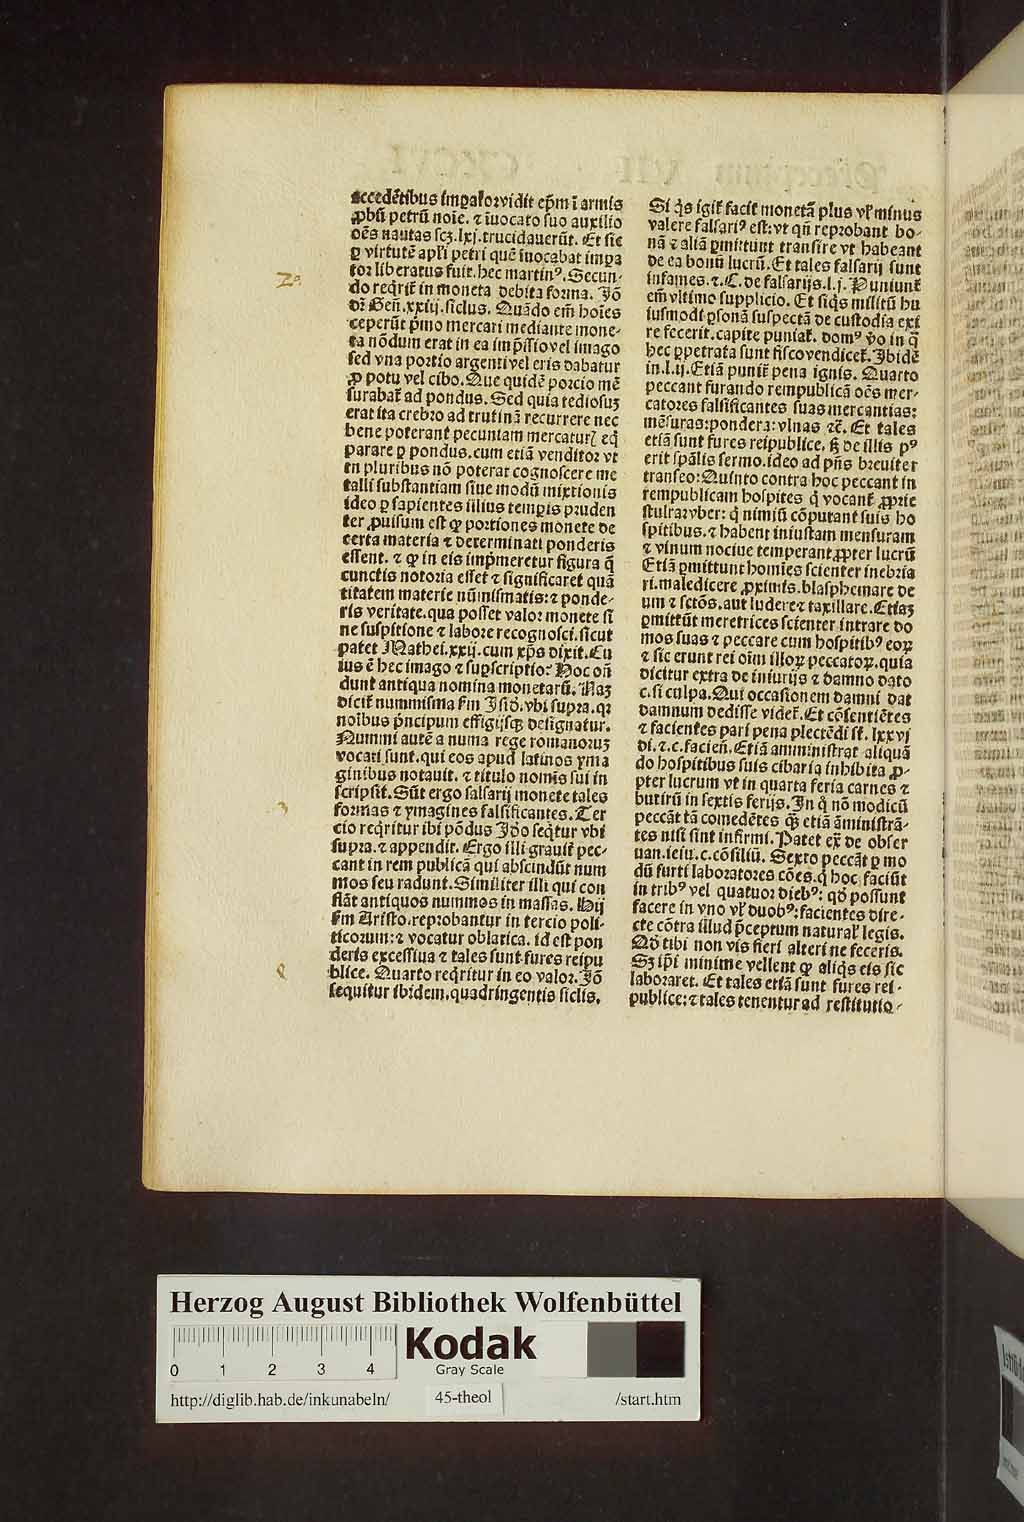 accedẽtibus imꝑator vidit ep̃m ĩ armis
ꝓbũ petrũ noĩe. ⁊ ĩuocato suo auxilio
oẽs nautas scꝫ .lxj. trucidauerũt. Et sic
ꝑ virtutẽ apl̃i petri quẽ ĩuocabat imꝑa
tor liberatus fuit. hec martinꝰ. Secun-
do reqrit̃ in moneta debita forma. Jõ
dr̃ Geñ. xxiij. siclus. Quãdo em̃ hoĩes
ceperũt p̃mo mercari mediante mone-
ta nõdum erat in ea imp̃ssio vel imago
sed vna portio argenti vel eris dabatur
ꝓ potu vel cibo. Que quidẽ porcio mẽ
surabat̃ ad pondus. Sed quia tediosuꝫ
erat ita crebro ad trutinã recurrere nec
bene poterant pecuniam mercaturĩ eq̃
parare ꝑ pondus. cum etiã venditor vt
in pluribus nõ poterat cognoscere me
talli substantiam siue modũ mixtionis
ideo ꝑ sapientes illius tempis pruden
ter ꝓuisum est ꝙ portiones monete de
certa materia ⁊ determinati ponderis
essent. ⁊ ꝙ in eis imp̃meretur figura q̃
cunctis notoria esset ⁊ significaret quã
titatem materie nũmismatis: ⁊ ponde-
ris veritate. qua posset valor monete si
ne suspitione ⁊ labore recognosci. sicut
patet Mathei. xxij. cum xp̃s dixit. Cu
ius ẽ hec imago ⁊ suꝑscriptio? Hoc oñ
dunt antiqua nomina monetarũ. Naꝫ
dicit̃ nummisma fm̃ Jsid. vbi supra. qꝛ
noĩbus p̃ncipum effigijsqꝫ designatur.
Nummi autẽ a numa rege romanoruꝫ
vocati sunt. qui eos apud latinos yma
ginibus notauit. ⁊ titulo nomĩs sui in
scripsit. Sũt ergo falsarij monete tales
formas ⁊ ymagines falsificantes. Ter
cio reqritur ibi põdus Jdo seq̃tur vbi
supra. ⁊ appendit. Ergo illi grauit̃ pec-
cant in rem publicã qui abscindũt num
mos seu radunt. Similiter illi qui con
flãt antiquos nummos in massas. Hij
fm̃ Aristo. reprobantur in tercio poli-
ticorum: ⁊ vocatur oblatica. id est pon
deris excessiua ⁊ tales sunt fures reipu
blice. Quarto reqritur in eo valor. Jõ
sequitur ibidem. quadringentis siclis.
Si qs igit̃ facit̃ monetã plus vl̃ minus
valere falsariꝰ est: vt qñ reprobant bo-
nã ⁊ aliã ꝑmittunt transire vt habeant
de ea bonũ lucrũ. Et tales falsarij sunt
infames. ⁊. C. de falsarijs. l. j. Puniunt̃
em̃ vltimo supplicio. Et siqs militũ hu
iusmodi ꝑsonã suspectã de custodia exi
re fecerit. capite puniat̃. domꝰ v̾o in q̃
hec ꝑpetrata sunt fisco vendicet̃. Jbidẽ
in. l. ij. Etiã punit̃ pena ignis. Quarto
peccant furando rempublicã oẽs mer-
catores falsificantes suas mercantias:
mẽsuras: pondera: vlnas ⁊c̃. Et tales
etiã sunt fures reipublice. sꝫ de illis pꝰ
erit sp̃alis sermo. ideo ad p̃ñs breuiter
transeo: Quinto contra hoc peccant in
rempublicam hospites q̃ vocant̃ ꝓprie
q̃ nimiũ cõputant suis ho
spitibus. ⁊ habent iniustam mensuram
⁊ vinum nociue temperant ꝓpter lucrũ
Etiã ꝑmittunt homĩes scienter inebria
ri. maledicere ꝓximis. blasphemare de
um ⁊ sctõs. aut ludere ⁊ taxillare. Etiaꝫ
ꝑmittũt meretrices scienter intrare do
mos suas ⁊ peccare cum hospitibꝰ eoꝝ
⁊ sic erunt rei oĩm illoꝝ peccatoꝝ. quia
dicitur extra de iniurijs ⁊ damno dato
c. si culpa. Qui occasionem damni dat
damnum dedisse videt̃. Et cõsentiẽtes
⁊ facientes pari pena plectẽdi st̃. lxxvj
di. ⁊. c. facieñ. Etiã amministrãt aliquã
do hospitibus suis cibaria inhibita ꝓ-
pter lucrum vt in quarta feria carnes ⁊
butirũ in sextis ferijs. Jn q̃ nõ modicũ
peccãt tã comedẽtes q̃ꝫ etiã ãministrã-
tes nisi sint infirmi. Patet ex̃ de obser
uan. ieiu. c. cõsiliũ. Sexto peccãt ꝑ mo
dũ furti laboratores cões. q̃ hoc faciũt
in tribꝰ vel quatuor diebꝰ: qd̃ possunt
facere in vno vl̃ duobꝰ: facientes dire-
cte cõtra illud p̃ceptum natural̃ legis.
Qd̃ tibi non vis fieri alteri ne feceris.
Sꝫ ip̃i minime vellent ꝙ aliqs eis sic
laboraret. Et tales etiã sunt fures rei-
publice: ⁊ tales tenentur ad restitutio-
2ᵒ.
3
Herzog August Bibliothek Wolfenbüttel
0 1 2 3 4
Kodak
Gray Scale
http://diglib.hab.de/inkunabeln/
45-theol
/start.htm